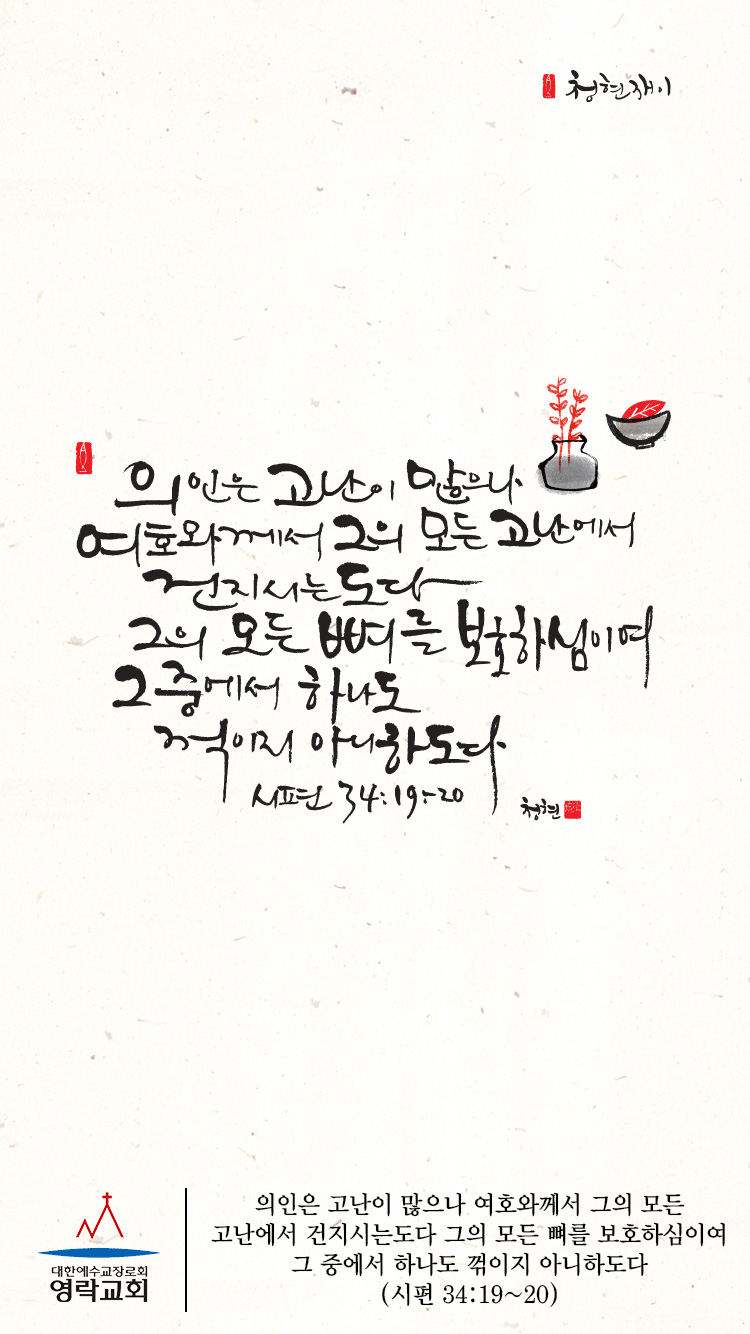 청현재이
의인은 고난이 많으나
여호와께서 그의 모든 고난에서
건지시는도다
그의 모든 뼈를 보호하심이여
그 중에서 하나도
꺽이지 아니하도다
시편 34:19-20
청현
의인은 고난이 많으나 여호와께서 그의 모든
고난에서 건지시는도다 그의 모든 뼈를 보호하심이여
그 중에서 하나도 꺾이지 아니하도다
(시편 34:19~20)
대한예수교장로회
영락교회